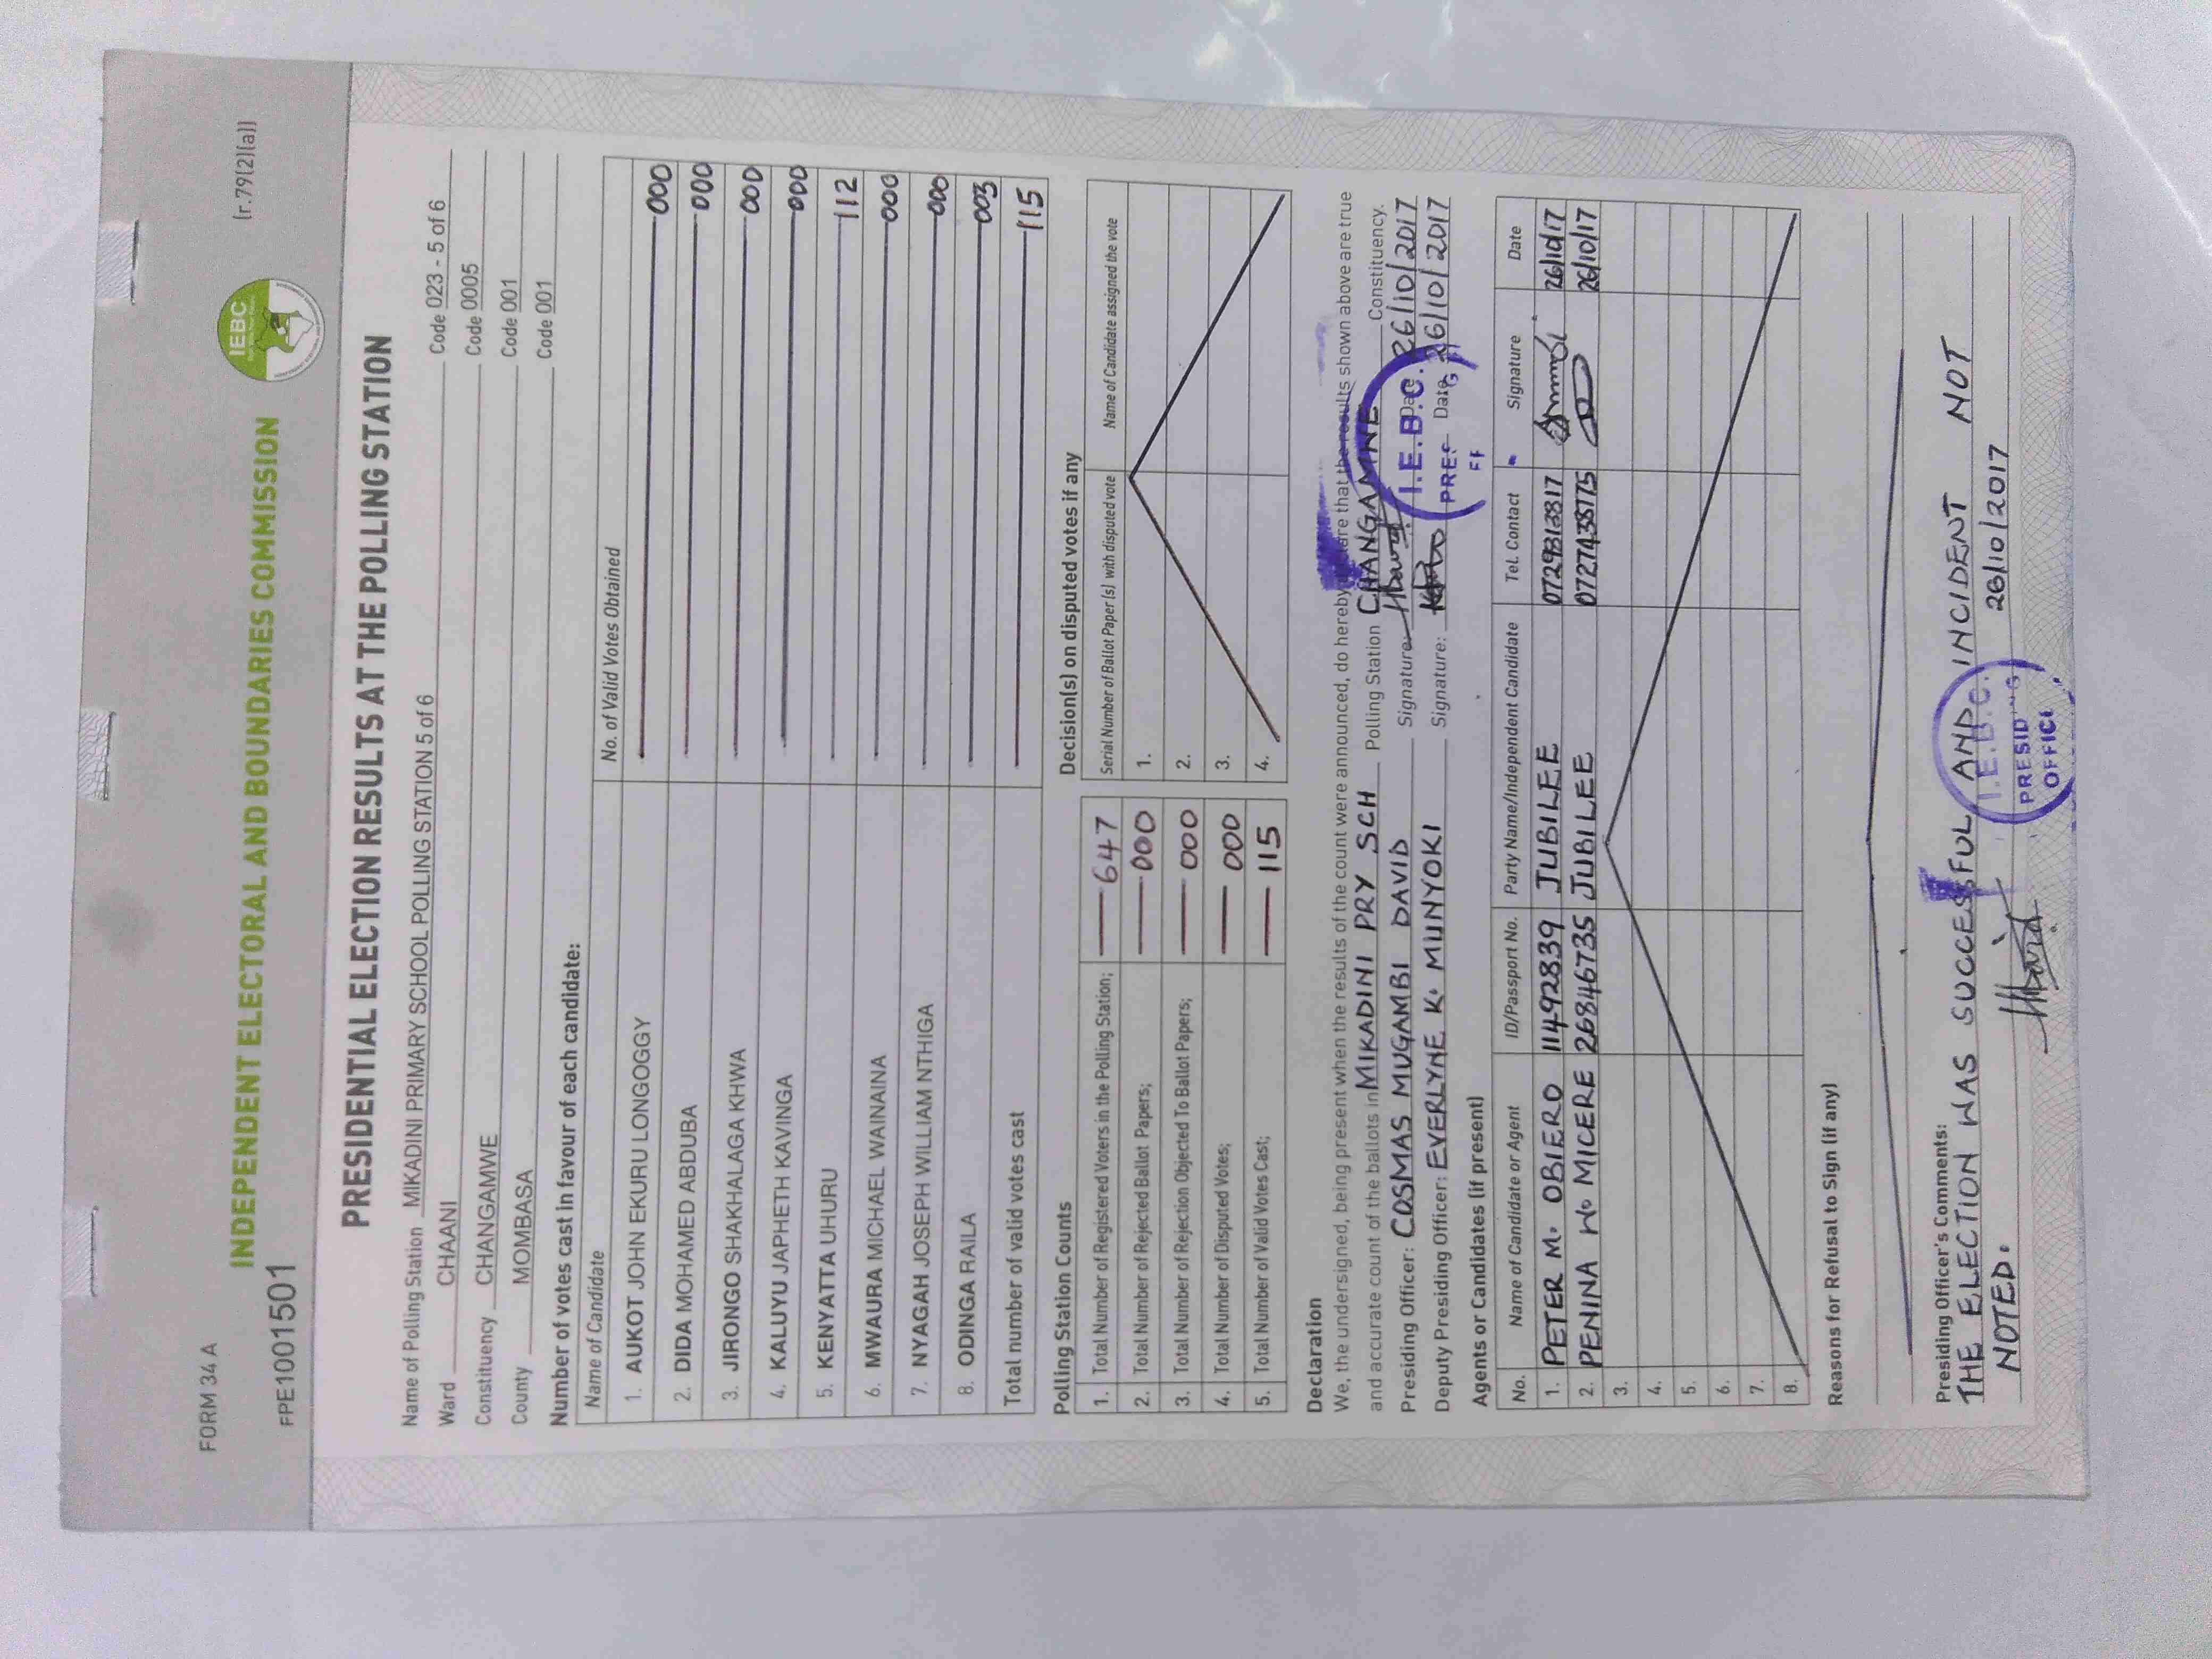 FORM 34 A
[r.79(2)(a)]
IEBC
INDEPENDENT ELECTORAL AND BOUNDARIES COMMISSION
FPE1001501
PRESIDENTIAL ELECTION RESULTS AT THE POLLING STATION
Name of Polling Station MIKADINI PRIMARY SCHOOL POLLING STATION 5 of 6 Code 023 - 5 of 6
Ward CHAANI Code 0005
Constituency CHANGAMWE Code 001
County MOMBASA Code 001
Number of votes cast in favour of each candidate:
Name of Candidate No. of Valid Votes Obtained
1. AUKOT JOHN EKURU LONGOGGY 000
2. DIDA MOHAMED ABDUBA 000
3. JIRONGO SHAKHALAGA KHWA 000
4. KALUYU JAPHETH KAVINGA 000
5. KENYATTA UHURU 112
6. MWAURA MICHAEL WAINAINA 000
7. NYAGAH JOSEPH WILLIAM NTHIGA 000
8. ODINGA RAILA 003
Total number of valid votes cast 115
Polling Station Counts
1. Total Number of Registered Voters in the Polling Station; 647
2. Total Number of Rejected Ballot Papers; 000
3. Total Number of Rejection Objected To Ballot Papers; 000
4. Total Number of Disputed Votes; 000
5. Total Number of Valid Votes Cast; 115
Decision(s) on disputed votes if any
Serial Number of Ballot Paper (s) with disputed vote Name of Candidate assigned the vote
1.
2.
3.
4.
Declaration
We, the undersigned, being present when the results of the count were announced, do hereby declare that the results shown above are true
and accurate count of the ballots in MIKADINI PRY SCH Polling Station CHANGAMWE Constituency.
Presiding Officer: COSMAS MUGAMBI DAVID Signature: Date: 26/10/2017
Deputy Presiding Officer: EVERLYNE K. MUNYOKI Signature: Date: 26/10/2017
I.E.B.C.
Agents or Candidates (if present)
No. Name of Candidate or Agent ID/Passport No. Party Name/Independent Candidate Tel. Contact Signature Date
1. PETER M. OBIERO 11492839 JUBILEE 0729313817 26/10/17
2. PENINA W. MICERE 26846735 JUBILEE 0727438775 26/10/17
3.
4.
5.
6.
7.
8.
Reasons for Refusal to Sign (if any)
Presiding Officer's Comments:
THE ELECTION WAS SUCCESSFUL AND INCIDENT NOT
NOTED. 26/10/2017
I.E.B.C.
PRESIDING
OFFICE